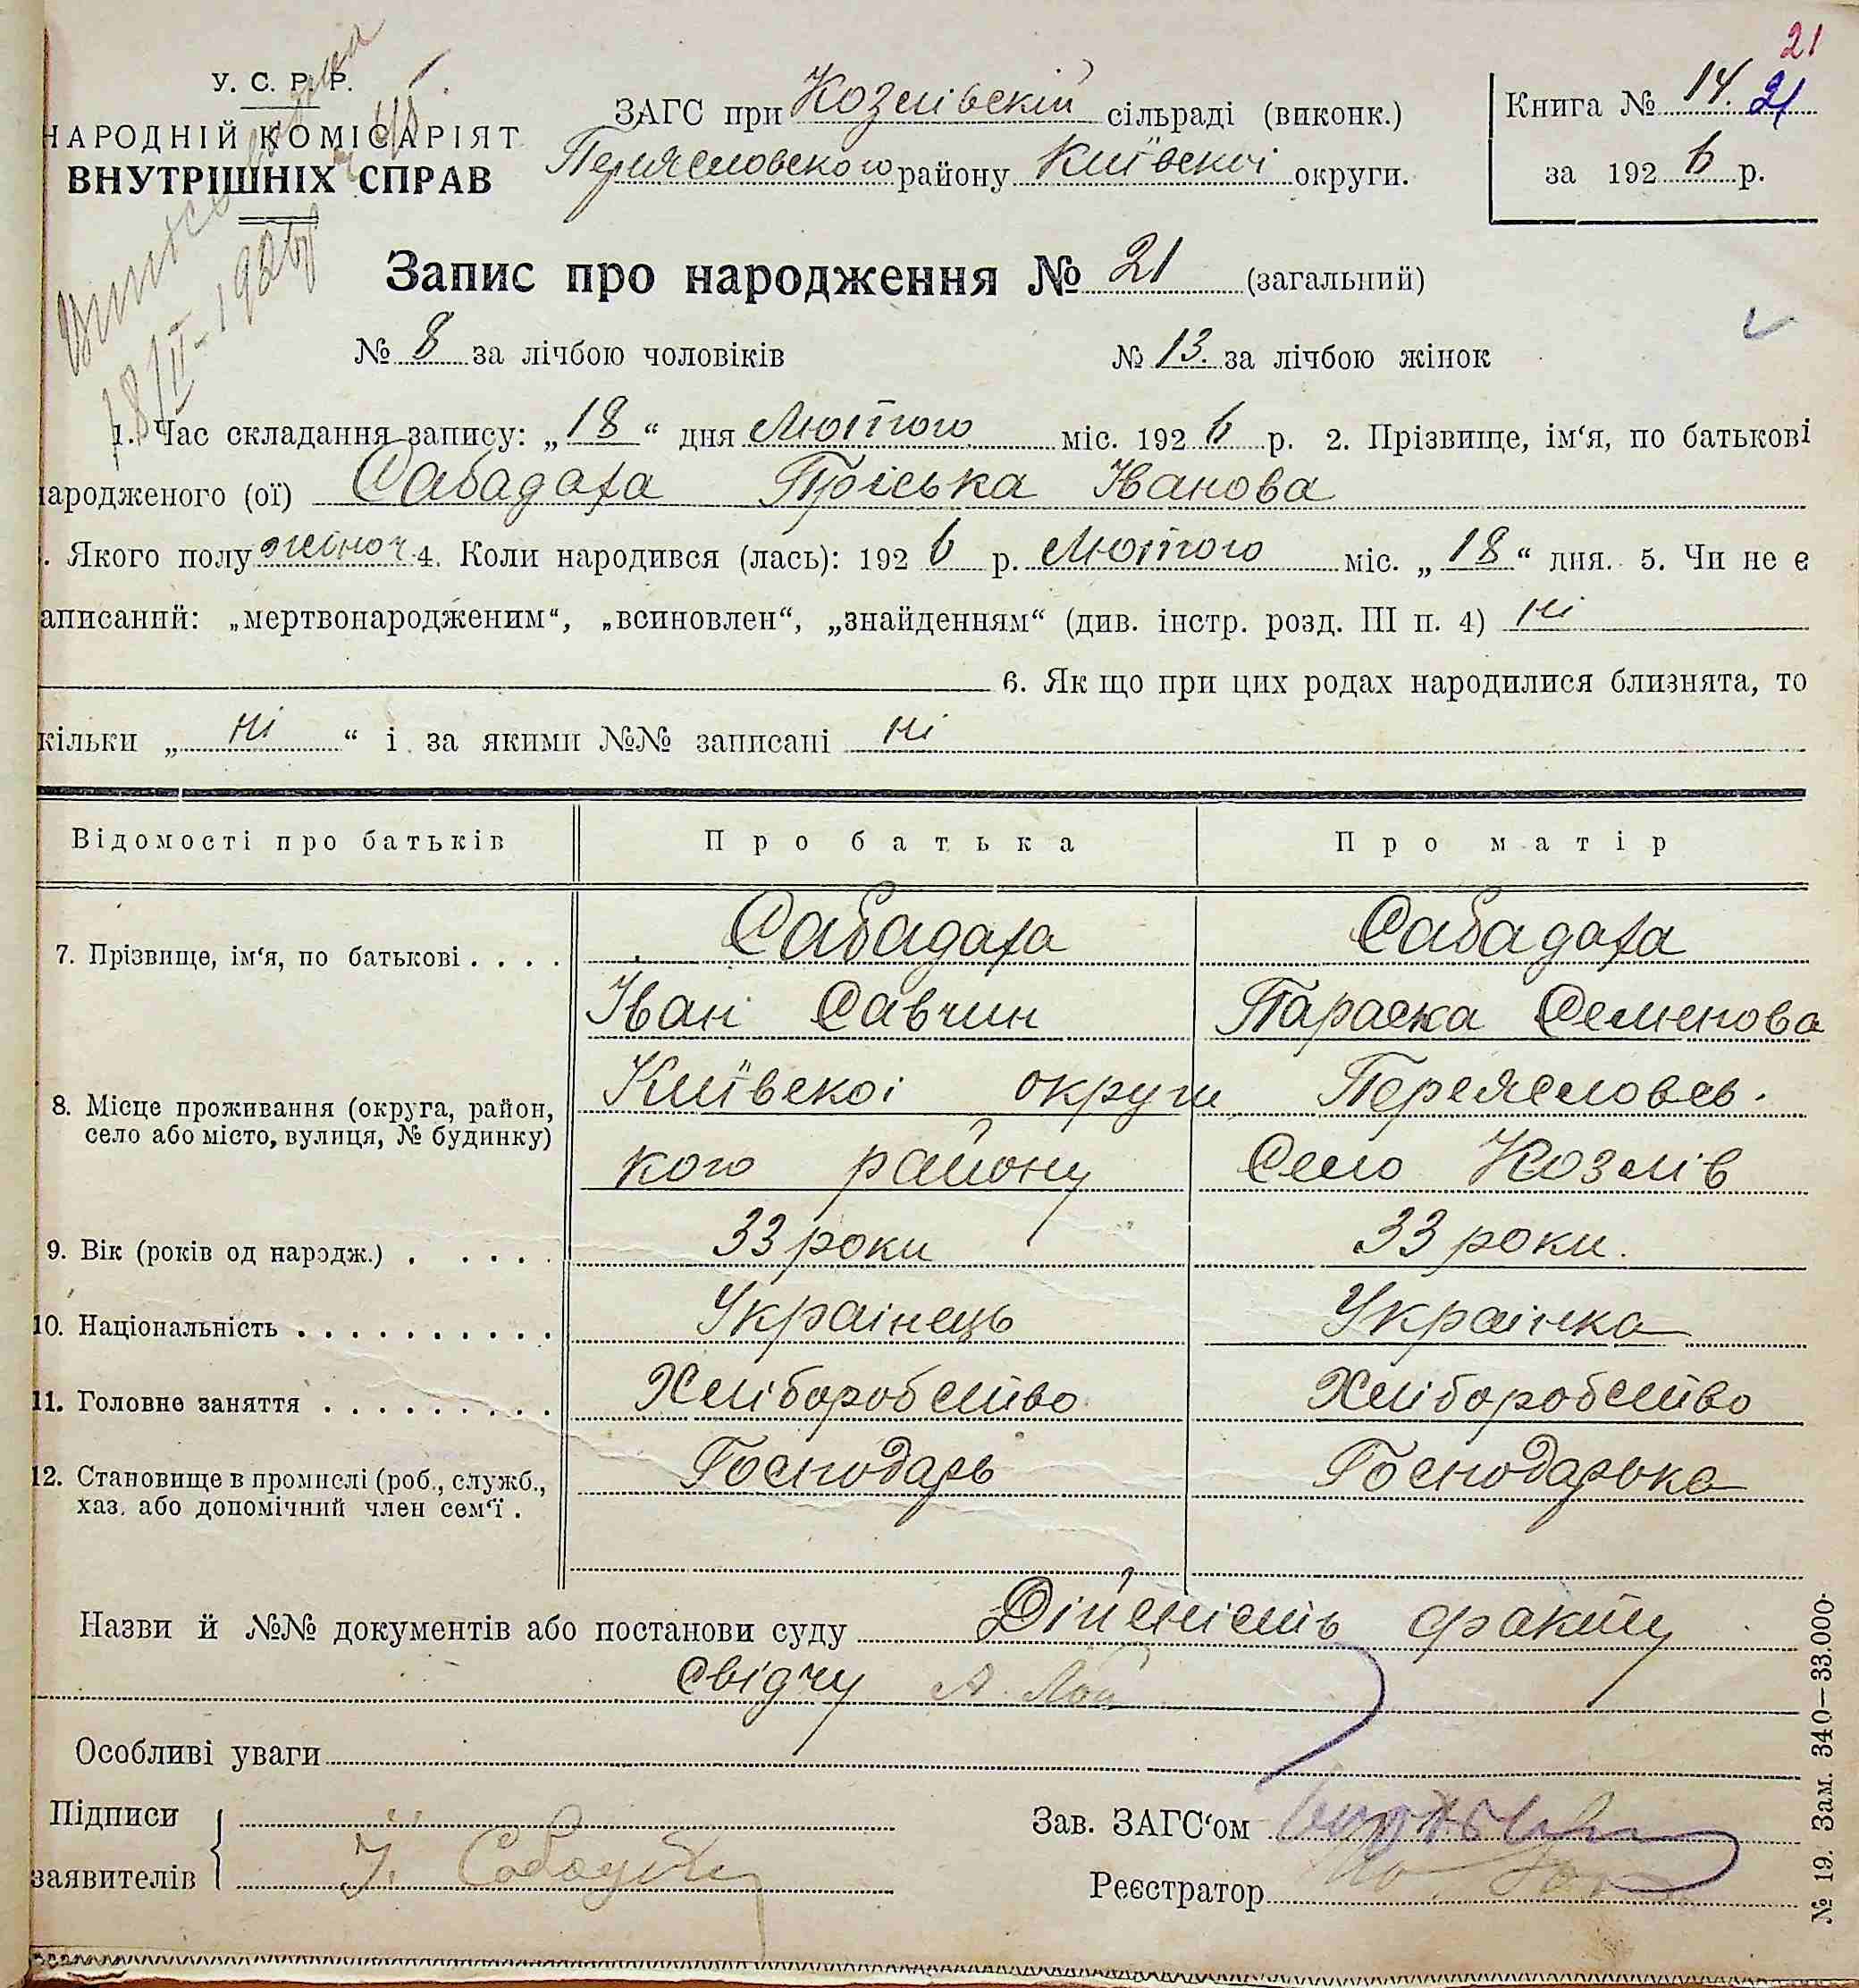 21
У. С. Р. Р.
НАРОДНІЙ КОМІСАРІЯТ
ВНУТРІШНІХ СПРАВ
ЗАГС при Козлівскій сільраді (виконк.)
Переясловского району Київскоі округи.
Книга № 14. 21
за 1926 р.
18/II-1926р
Запис про народження № 21 (загальний)
№ 8 за лічбою чоловіків № 13. за лічбою жінок
1. Час складання запису: „18“ дня Лютого міс. 1926 р. 2. Прізвище, ім‘я, по батькові
народженого (ої) Сабадаха Пріська Іванова
. Якого полу жіноч 4. Коли народився (лась): 1926 р. Лютого міс. „18“ дня. 5. Чи не є
аписаний: „мертвонародженим“, „всиновлен“, „знайденням“ (див. інстр. розд. III п. 4) ні
6. Як що при цих родах народилися близнята, то
кільки „ ні “ і за якими №№ записані ні
Відомості про батьків Про батька Про матір
7. Прізвище, ім‘я, по батькові . . . . Сабадаха Сабадаха
Іван Савчин Параска Семенова
8. Місце проживання (округа, район, село або місто, вулиця, № будинку) Київскоі округи Переясловсь-
кого району Село Козлів
9. Вік (років од нарэдж.) . . . . . 33 роки 33 роки.
10. Національність . . . . . . . . . . Украінець Украінка
11. Головне заняття . . . . . . . . . Хліборобство Хліборобство
12. Становище в промислі (роб., служб., хаз. або допомічний член сем‘ї . Господарь Господарька
Назви й №№ документів або постанови суду Дійсність факту
свідчу А. Лой
Особливі уваги
Підписи
заявителів І. Сабадаха
Зав. ЗАГС‘ом
Реєстратор
№ 19. Зам. 340—33.000.